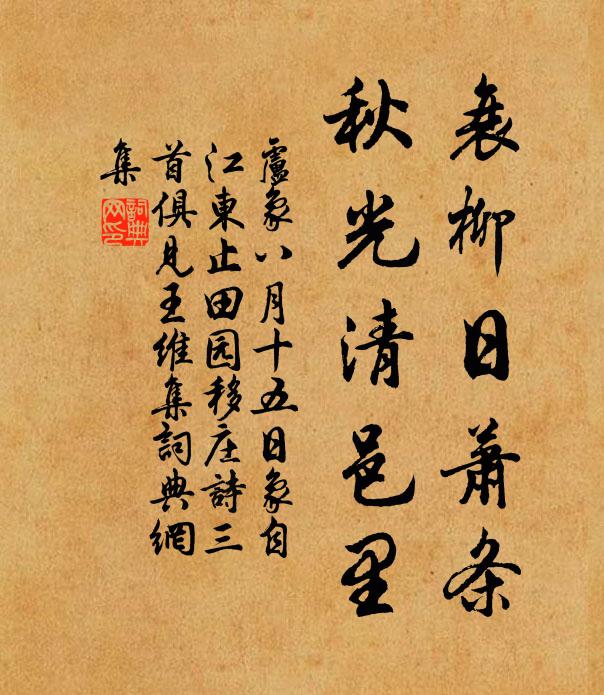 衰柳日蕭条
秋光清邑里
盧象八月十五日象自
江東止田园移庄詩三
首俱見王維集詞典網
集
詞典
网印